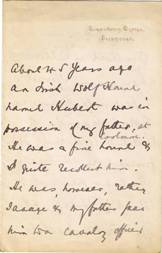 About 45 years ago
an Irish Wolf Hound
named Hubert was in
possession of my father, at
He was a fine hound &
I quite recollect him.
He was, however, rather
savage & my father gave
him to a cavalry officer